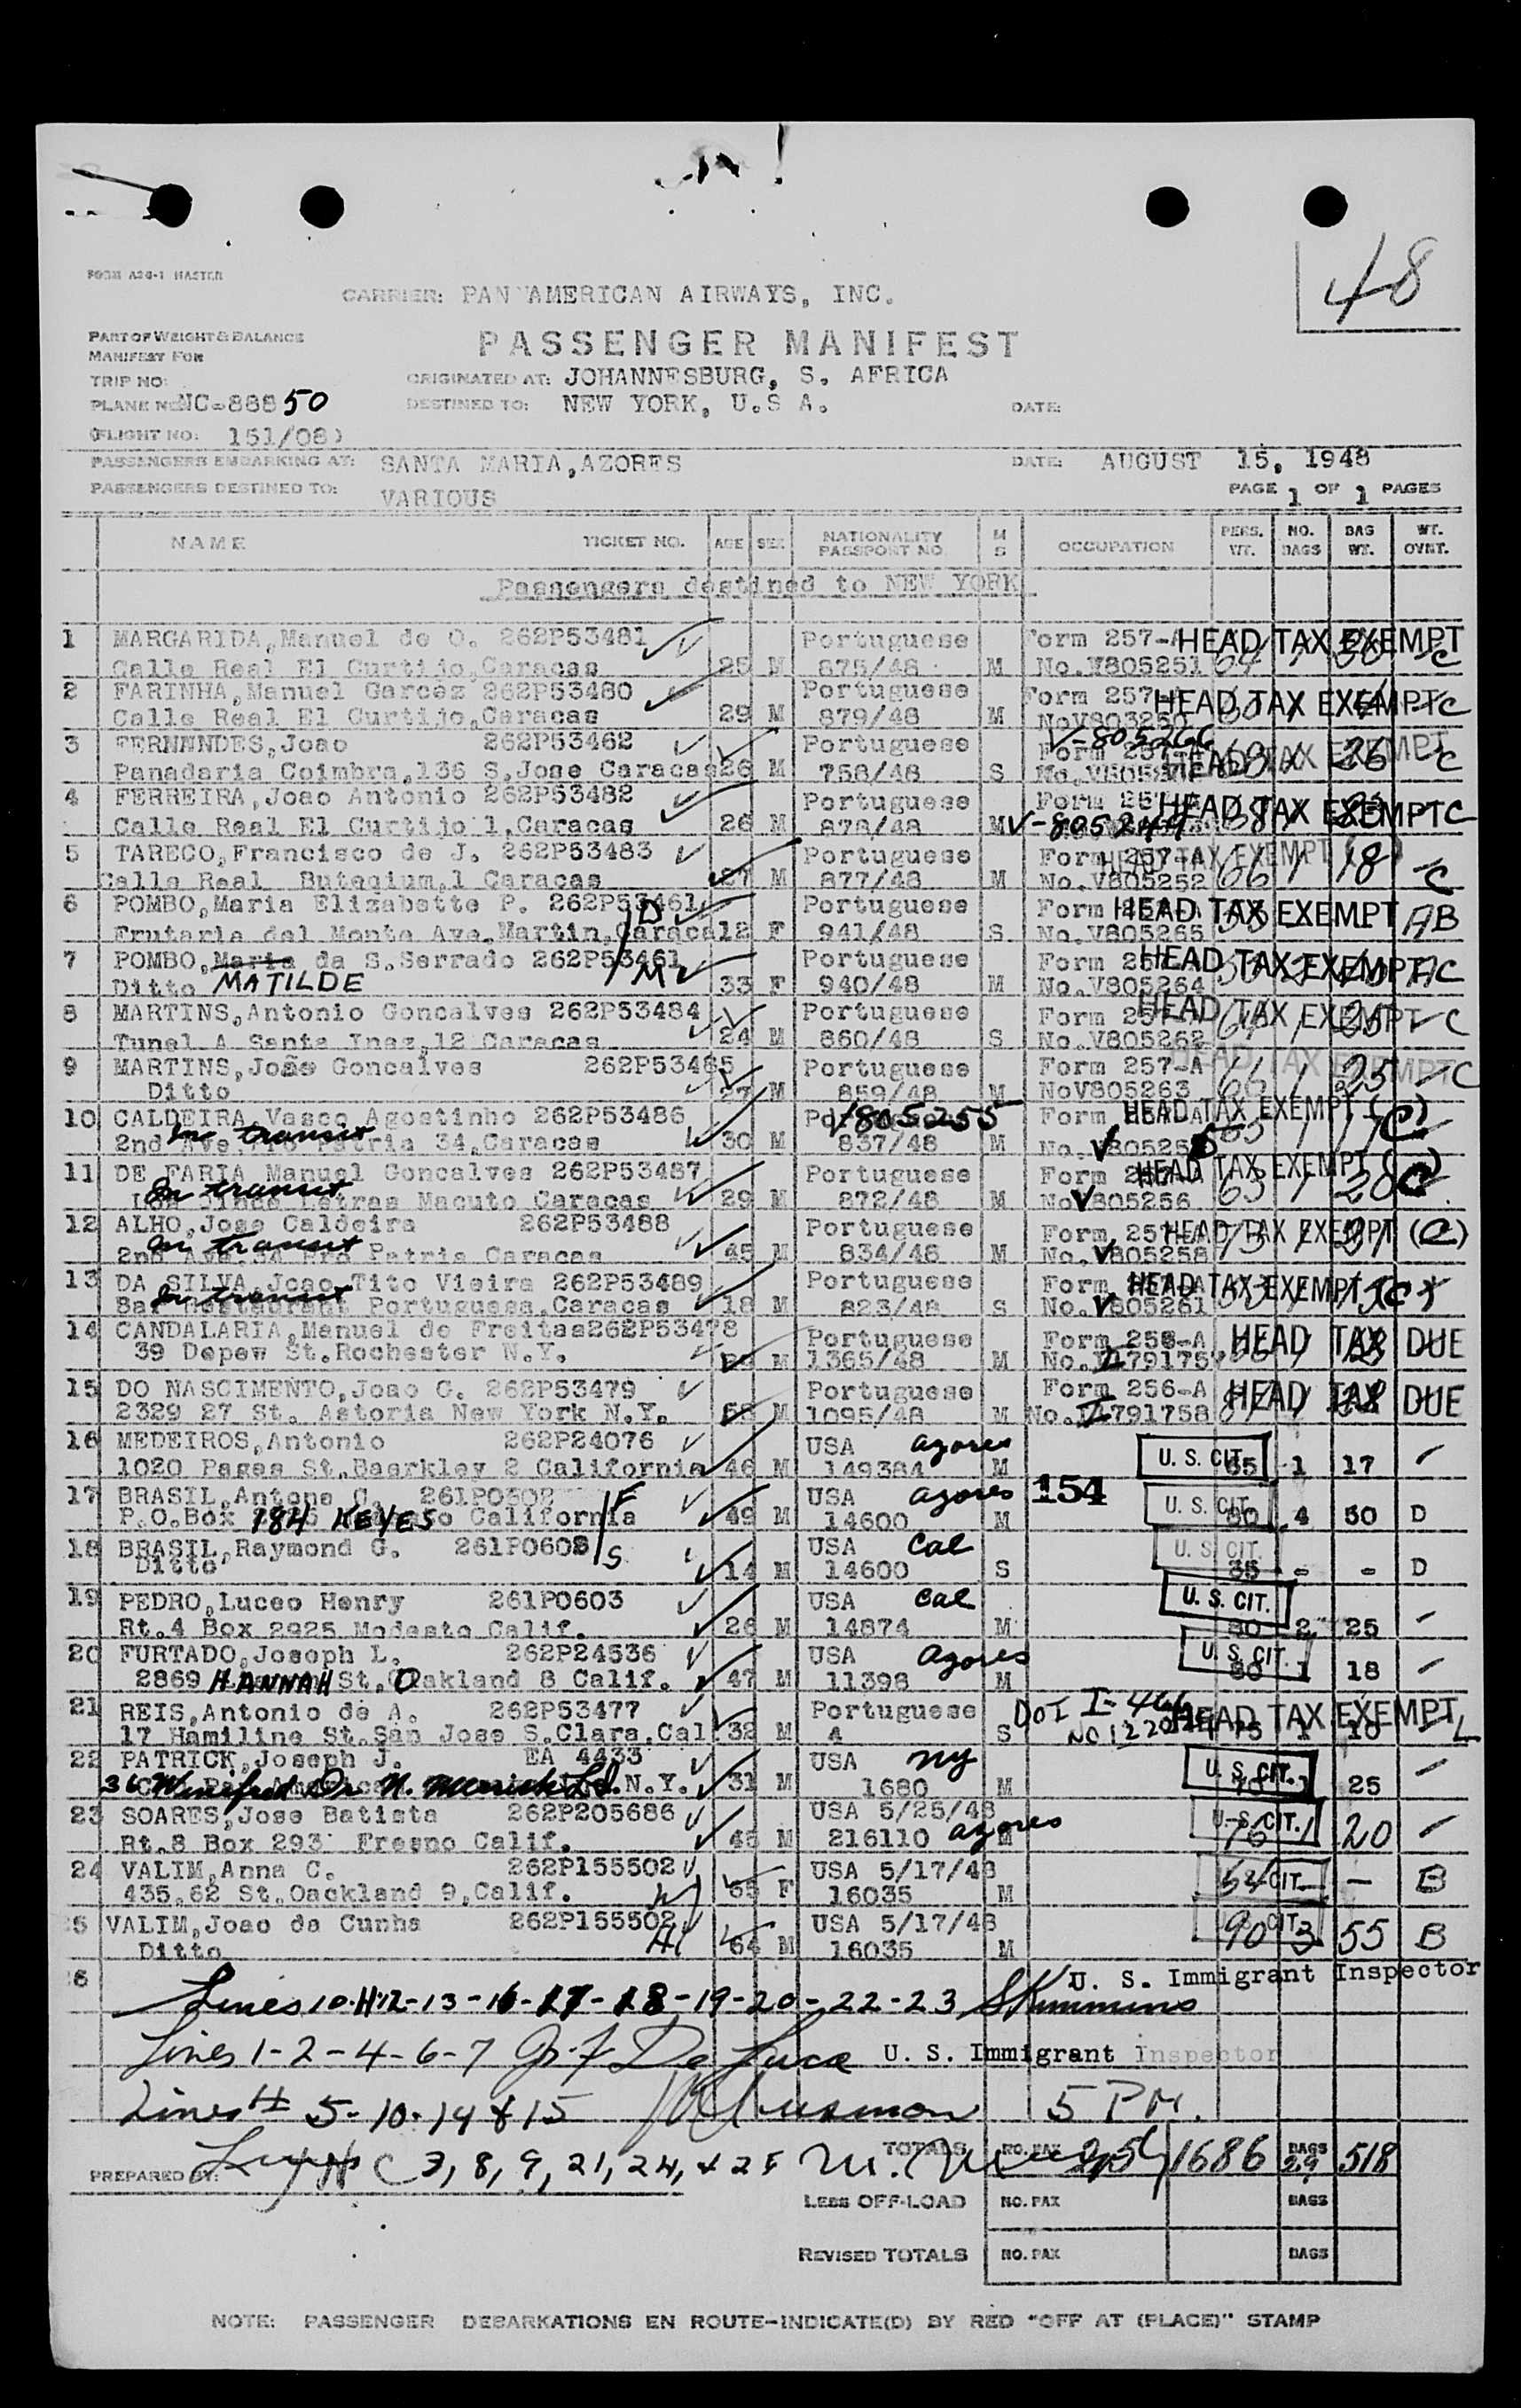 48
FORM A24-1 MASTER
CARRIER: PAN AMERICAN AIRWAYS, INC.
PART OF WEIGHT & BALANCE
MANIFEST FOR
PASSENGER MANIFEST
TRIP NO:
ORIGINATED AT: JOHANNESBURG, S. AFRICA
PLANE NO: NC-88850
DESTINED TO: NEW YORK, U.S A. DATE:
(FLIGHT NO: 151/08)
PASSENGERS EMBARKING AT: SANTA MARIA, AZORES DATE: AUGUST 15, 1948
PASSENGERS DESTINED TO: VARIOUS PAGE 1 OF 1 PAGES
NAME TICKET NO. AGE SEX NATIONALITY PASSPORT NO. M S OCCUPATION PERS. WT. NO. BAGS BAG WT. WT. OVST.
Passengers destined to NEW YORK
1 MARGARIDA, Manuel de O. 262P53481 Portuguese Form 257-A HEAD TAX EXEMPT
Calle Real El Curtijo, Caracas 25 M 875/48 M No.V805251 C
2 FARINHA, Manuel Garcez 262P53480 Portuguese Form 257- HEAD TAX EXEMPT C
Calle Real El Curtijo, Caracas 29 M 879/48 M NoV803250
3 FERNNNDES, Joao 262P53462 Portuguese V-805266 Form 257-A HEAD TAX EXEMPT
Panadaria Coimbra, 136 S.Jose Caracas 26 M 758/48 S 26 C
4 FERREIRA, Joao Antonio 262P53482 Portuguese Form 257-A HEAD TAX EXEMPT C
Calle Real El Curtijo 1, Caracas 26 M 878/48 M V-805249
5 TARECO, Francisco de J. 262P53483 Portuguese Form 257-A HEAD TAX EXEMPT
Calle Real Butequium, 1 Caracas 27 M 877/48 M No.V805252 66 1 18 C
6 POMBO, Maria Elizabette P. 262P53461 D Portuguese Form HEAD TAX EXEMPT AB
Frutaria del Monte Ave.Martin, Caracal2 F 941/48 S No.V805265
7 POMBO, Maria da S.Serrado 262P53461 M Portuguese Form HEAD TAX EXEMPT AC
Ditto MATILDE 33 F 940/48 M No.V805264
8 MARTINS, Antonio Goncalves 262P53484 Portuguese Form HEAD TAX EXEMPT C
Tunel A Santa Inez, 12 Caracas 24 M 860/48 S No.V805262
9 MARTINS, João Goncalves 262P53485 Portuguese Form 257-A HEAD TAX EXEMPT
Ditto 27 M 859/48 M NoV805263 66 1 25 C
10 CALDEIRA, Vasco Agostinho 262P53486 V805255 Form HEAD TAX EXEMPT (C)
2nd Ave. Pro Patria 34, Caracas In transit 30 M 837/48 M
11 DE FARIA Manuel Goncalves 262P53487 Portuguese Form HEAD TAX EXEMPT (C)
In transit Letras Macuto Caracas 29 M 872/48 M NoV805256 63 1 20
12 ALHO, Jose Caldeira 262P53488 Portuguese Form 257-A HEAD TAX EXEMPT (C)
In transit 2nd Ave. 34 Pro Patria Caracas 45 M 834/48 M No.V805258
13 DA SILVA, Joao Tito Vieira 262P53489 Portuguese Form HEAD TAX EXEMPT (C)
In transit Bar Restaurant Portuguesa, Caracas 18 M 823/48 S No.V805261
14 CANDALARIA, Manuel de Freitas262P53478 Portuguese Form 256-A HEAD TAX DUE
39 Depew St.Rochester N.Y. M 1365/48 M
15 DO NASCIMENTO, Joao G. 262P53479 Portuguese Form 256-A HEAD TAX DUE
2329 27 St. Astoria New York N.Y. 58 M 1095/48 M No.I791758
16 MEDEIROS, Antonio 262P24076 USA Azores U. S. CIT.
1020 Pages St.Baerkley 2 California 46 M 149384 M 65 1 17
17 BRASIL, Antone C. 261P0602 F USA Azores 154 U. S. CIT.
P.O.Box 184 KEYES California 49 M 14600 M 80 4 50 D
18 BRASIL, Raymond G. 261P0602 S USA Cal U. S. CIT.
Ditto 14 M 14600 S 35 - - D
19 PEDRO, Luceo Henry 261P0603 USA Cal U. S. CIT.
Rt.4 Box 2925 Modesto Calif. 26 M 14874 M 80 2 25
20 FURTADO, Joseph L. 262P24536 USA Azores U. S. CIT.
2869 HANNAH St. Oakland 8 Calif. 47 M 11398 M 80 1 18
21 REIS, Antonio de A. 262P53477 Portuguese DoI I-466 HEAD TAX EXEMPT
17 Hamiline St.San Jose S.Clara.Cal 32 M 4 S 75 1 10 L
22 PATRICK, Joseph J. EA 4433 USA NY U. S. CIT.
36 Winifred Dr N. Merrick L.I. N.Y. 31 M 1680 M 1 25
23 SOARES, Jose Batista 262P205686 USA 5/25/48 U. S. CIT.
Rt.8 Box 293 Fresno Calif. 45 M 216110 Azores M 76 1 20
24 VALIM, Anna C. 262P155502 USA 5/17/48 CIT.
435,62 St.Oackland 9, Calif. W 65 F 16035 M 54 - - B
25 VALIM, Joao da Cunha 262P155502 USA 5/17/48 CIT.
Ditto H 64 M 16035 M 90 3 55 B
U. S. Immigrant Inspector
Lines 10-11-12-13-16-17-18-19-20-22-23
Lines 1-2-4-6-7 De Luca U. S. Immigrant Inspector
Lines 5-10-14 & 15 5 PM.
3, 8, 9, 21, 24, & 25
PREPARED BY: TOTALS NO. PAX 25 1686 BAGS 29 518
LESS OFF-LOAD NO. PAX BAGS
REVISED TOTALS NO. PAX BAGS
NOTE: PASSENGER DEBARKATIONS EN ROUTE-INDICATE(D) BY RED "OFF AT (PLACE)" STAMP